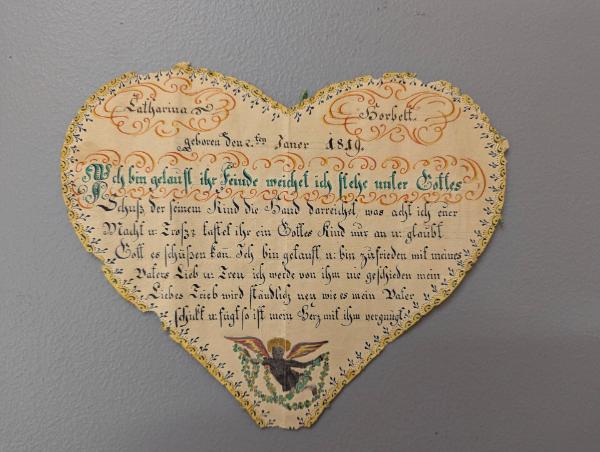 Catharina Horbelt.
geboren den 2.ten Janer 1819.
Ich bin getauft ihr Feinde weichet ich stehe unter Gottes
Schuß der seinem Kind die Hand darreichet, was acht ich euer
Macht u. Troß? tastet ihr ein Gottes Kind nur an u. glaubt
Gott es schüßen kan. Ich bin getauft u. bin zufrieden mit meines
Vaters Lieb u. Treu ich werde von ihm nie geschieden mein
Liebes Trieb wird ständlich neu wie es mein Vater
schickt u. fügt so ist mein Herz mit ihm vergnügt